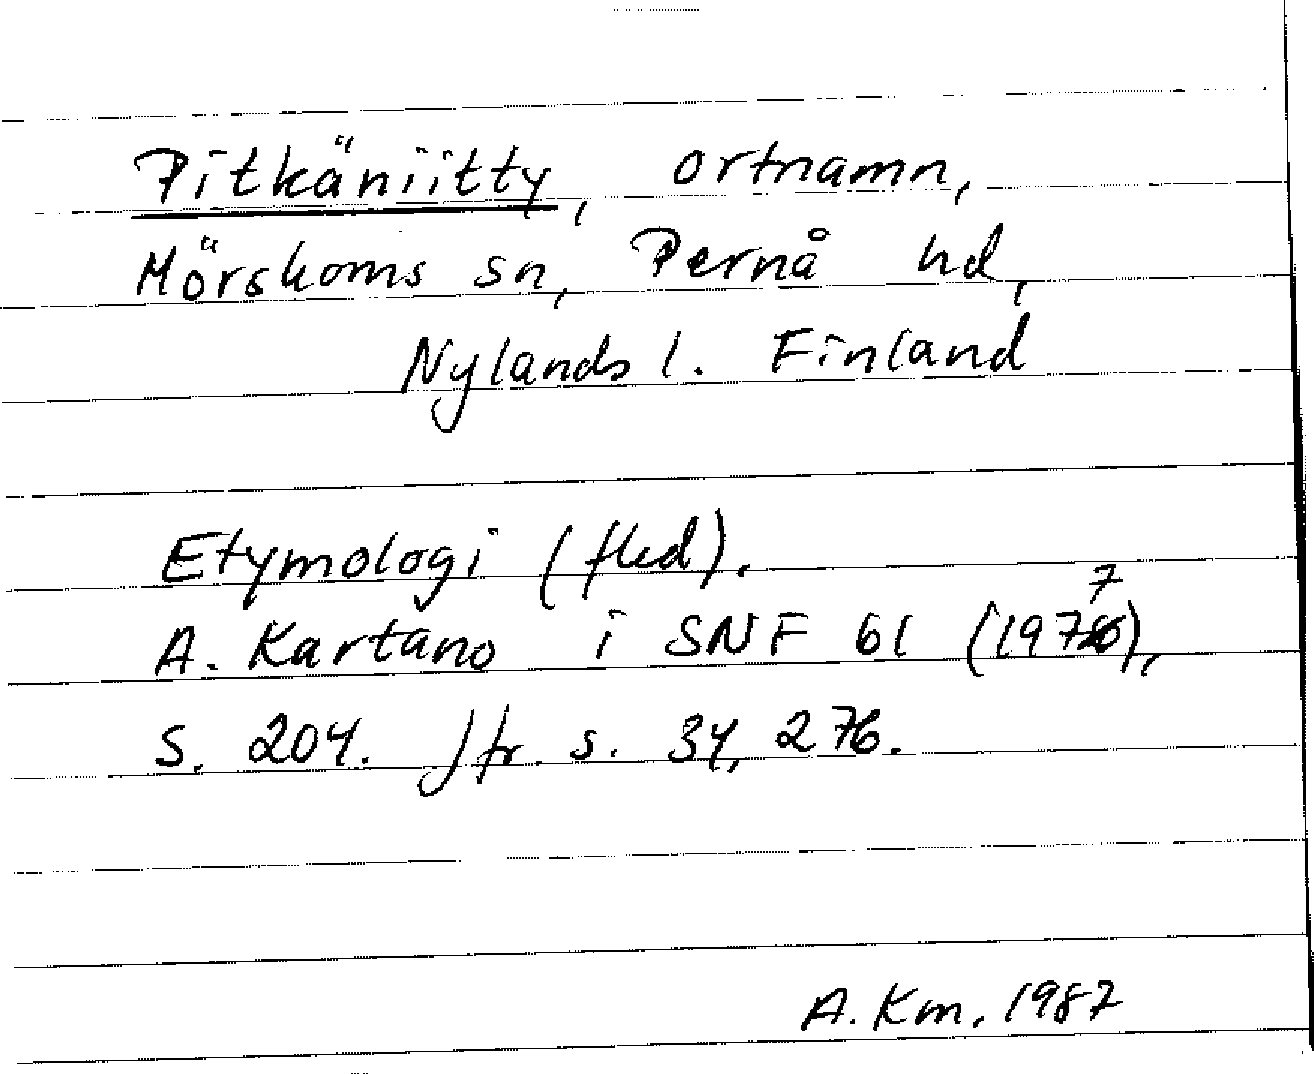 Pitkäniitty, ortnamn,
Mörskoms sn, Pernå hd,
Nylands l. Finland
Etymologi (fled).
A. Kartano i SNF 61 (1977),
S. 204. Jfr s. 34, 276.
A. Km. 1987